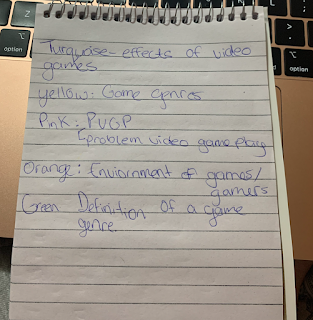 option
option
Turquoise- effects of video
games
yellow: Game genres
Pink: PVGP
problem video game play
Orange: Enviornment of games/
gamers
Green Definition of a game
genre.